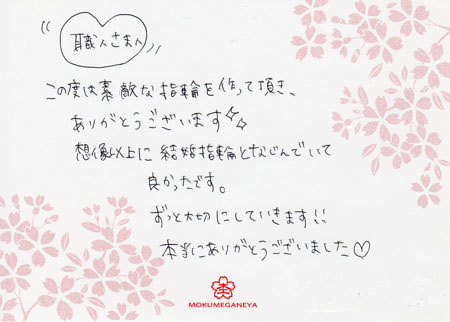 職人さまへ
この度は素敵な指輪を作って頂き、
ありがとうございます☆☆
想像以上に結婚指輪となじんでいて
良かったです。
ずっと大切にしていきます!!
本当にありがとうございました♡
MOKUMEGANEYA